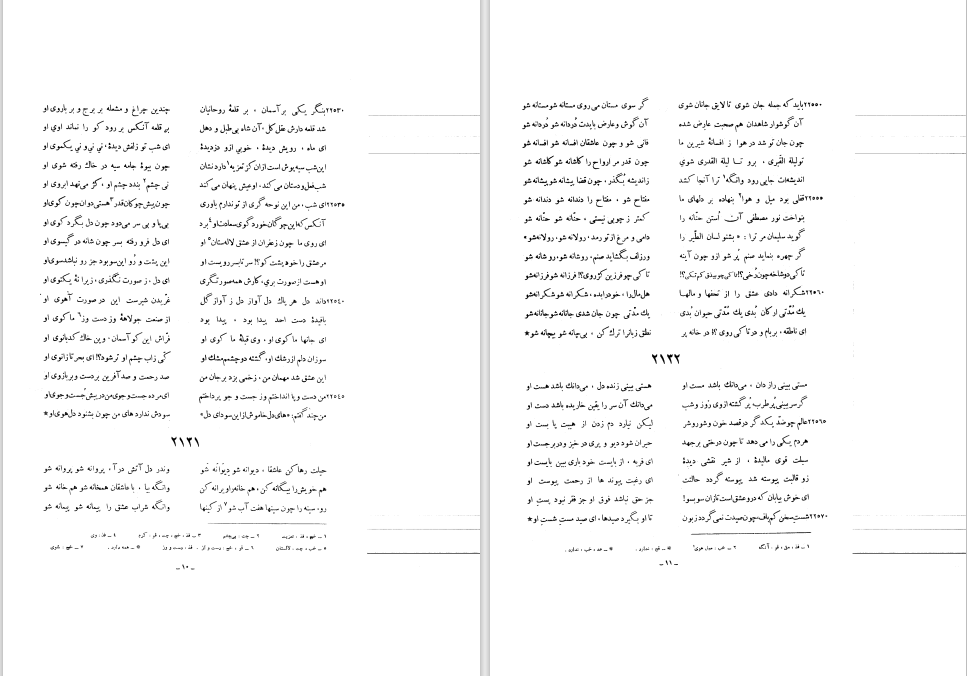 ۲۲۵۳۰ بنگر یکی بر آسمان ، بر قلعهٔ روحانیان چندین چراغ و مشعله بر برج و بر باروی او
شد قلعه دارش عقل کل، آن شاه بی‌طبل و دهل بر قلعه آنکس بر رود کو را نماند اوی او
ای ماه ، رویش دیدهٔ ، خوبی ازو دزدیدهٔ ای شب تو زلفش دیدهٔ، نی نی و نی یکموی او
این شب سیه پوش است ازان کز تعزیه۱ دارد نشان چون بیوهٔ جامه سیه در خاک رفته شوی او
شب فعل و دستان می‌کند، او عیش پنهان می‌کند نی چشم۲ بندد چشم او ، کژ می‌نهد ابروی او
۲۲۵۳۵ ای شب، من این نوحه گری از تو ندارم باوری چون پیش چوگان قدر۳ هستی دوان چون گوی او
آنکس که این چوگان خورد گوی سعادت او۴ برد بی‌پا و بی سر می‌دود چون دل بگرد کوی او
ای روی ما چون زعفران از عشق لاله‌ستان۵ او ای دل فرو رفته بسر چون شانه در گیسوی او
مر عشق را خود پشت کو؟! سر تا بسر رویست او این پشت و رُو این سو بود جز رو نباشد سوی او
او هست از صورت بری، کارش همه صورتگری ای دل ، ز صورت نگذری ، زیرا نهٔ یکتوی او
۲۲۵۴۰ داند دل هر پاك دل آواز دل ز آواز گل غرّیدن شیرست این در صورت آهوی او
بافیدهٔ دست احد پیدا بود ، پیدا بود از صنعت جولاههٔ وز دست وز۶ ماکوی او
ای جانها ماکوی او ، وی قبلهٔ ما کوی او فرّاش این کو آسمان، وین خاك کدبانوی او
سوزان دلم از رشك او، گشته دو چشمم مشك او کی ز آب چشم او تر شود؟! ای بحر تا زانوی او
این عشق شد مهمان من ، زخمی بزد بر جان من صد رحمت و صد آفرین بر دست و بر بازوی او
۲۲۵۴۵ من دست و پا انداختم وز جست و جو پرداختم ای مرده جست و جوی من در پیش جُست و جوی او
من چند گفتم: «های دل خاموش ازین سودای دل» سودش ندارد های من چون بشنود دل هوی او*
۲۱۳۱
حیلت رها کن عاشقا ، دیوانه شو دیوانه شو وندر دل آتش درآ ، پروانه شو پروانه شو
هم خویش را بیگانه کن، هم خانه را ویرانه کن وانگه بیا ، با عاشقان همخانه شو هم خانه شو
رو، سینه را چون سینها هفت آب شو۷ از کینها وانگه شراب عشق را پیمانه شو پیمانه شو
ـ ۱۰ ـ
۲۲۵۵۰ باید که جمله جان شوی تا لایق جانان شوی گر سوی مستان می‌روی مستانه شو مستانه شو
آن گوشوار شاهدان هم صحبت عارض شده آن گوش و عارض بایدت دُردانه شو دُردانه شو
چون جان تو شد در هوا ز افسانهٔ شیرین ما فانی شو و چون عاشقان افسانه شو افسانه شو
تو لیلة القبری ، برو تا لیلة القدری شوی چون قدر مر ارواح را کاشانه شو کاشانه شو
اندیشه‌ات جایی رود وانگه۱ ترا آنجا کشد ز اندیشه بُگذر ، چون قضا پیشانه شو پیشانه شو
۲۲۵۵۵ قفلی بود میل و هوا۲ بنهاده بر دلهای ما مفتاح شو ، مفتاح را دندانه شو دندانه شو
بنواخت نور مصطفی آن اُستن حنّانه را کمتر ز چوبی نیستی ، حنّانه شو حنّانه شو
گوید سلیمان مر ترا : « بشنو لسان الطّیر را دامی و مرغ از تو رمد، رو لانه شو، رو لانه شو»
گر چهره بنماید صنم پُر شو ازو چون آینه ور زلف بگشاید صنم، رو شانه شو، رو شانه شو
تا کی دو شاخه چون رُخی؟! تا کی چو بیدق کم تکی؟! تا کی چو فرزین کژ روی؟! فرزانه شو فرزانه شو
۲۲۵۶۰ شکرانه دادی عشق را از تحفها و مالها هل مال را ، خود را بده ، شکرانه شو شکرانه شو
یك مدّتی ارکان بُدی یك مُدّتی حیوان بُدی یك مدّتی چون جان شدی جانانه شو جانانه شو
ای ناطقه ، بر بام و در تا کی روی ؟! در خانه پر نطق زبان را ترك کن ، بی‌چانه شو بیچانه شو*
۲۱۳۲
مستی ببینی راز دان ، می‌دانك باشد مست او هستی ببینی زنده دل ، می‌دانك باشد هست او
گر سر ببینی پُر طرب پُر گشته از وی روز و شب می‌دانك آن سر را یقین خاریده باشد دست او
۲۲۵۶۵ عالم چو ضدّ یکدگر در قصد خون و شور و شر لیکن نیارد دم زدن از هیبت پا بست او
هر دم یکی را می دهد تا چون درختی برجهد حیران شود دیو و پری در خیز و در برجست او
سبلت قوی مالیدهٔ ، از شیر نقشی دیدهٔ ای فربه ، از بایست خود باری ببین بایست او
زو قالبت پیوسته شد پیوسته گردد حالتت ای رغبت پیوند ها از رحمت پیوست او
ای خوش بیابان که درو عشق است تازان سو بسو! جز حق نباشد فوق او جز فقر نبود پست او
۲۲۵۷۰ شست سخن کم باف، چون صیدت نمی‌گردد زبون تا او بگیرد صیدها، ای صید مست شست او*
ـ ۱۱ ـ